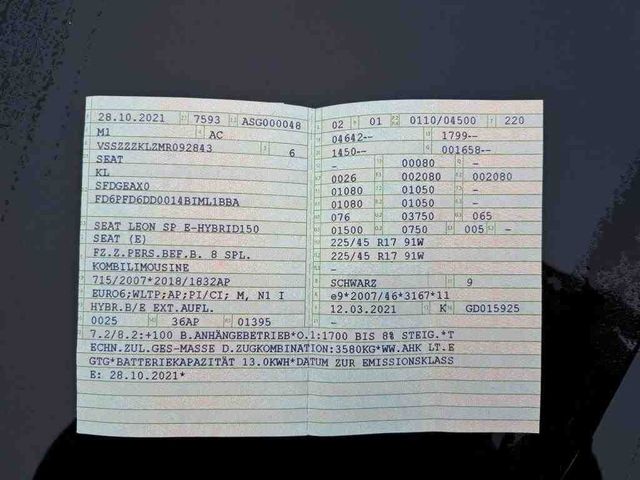 28.10.2021 7593 ASG000048
M1 AC
VSSZZZKLZMR092843 6
SEAT
KL
SFDGEAX0
FD6PFD6DD0014BIML1BBA
SEAT LEON SP E-HYBRID150
SEAT (E)
FZ.Z.PERS.BEF.B. 8 SPL.
KOMBILIMOUSINE
715/2007*2018/1832AP
EURO6;WLTP;AP;PI/CI; M, N1 I
HYBR.B/E EXT.AUFL.
0025 36AP 01395
02 01 0110/04500 220
04642-- 1799--
1450-- 001658--
- 00080 -
0026 002080 002080
01080 01050 -
01080 01050 -
076 03750 065
01500 0750 005 -
225/45 R17 91W
225/45 R17 91W
-
SCHWARZ 9
e9*2007/46*3167*11
12.03.2021 K GD015925
7.2/8.2:+100 B.ANHÄNGEBETRIEB*O.1:1700 BIS 8% STEIG.*T
ECHN.ZUL.GES-MASSE D.ZUGKOMBINATION:3580KG*WW.AHK LT.E
GTG*BATTERIEKAPAZITÄT 13.0KWH*DATUM ZUR EMISSIONSKLASS
E: 28.10.2021*